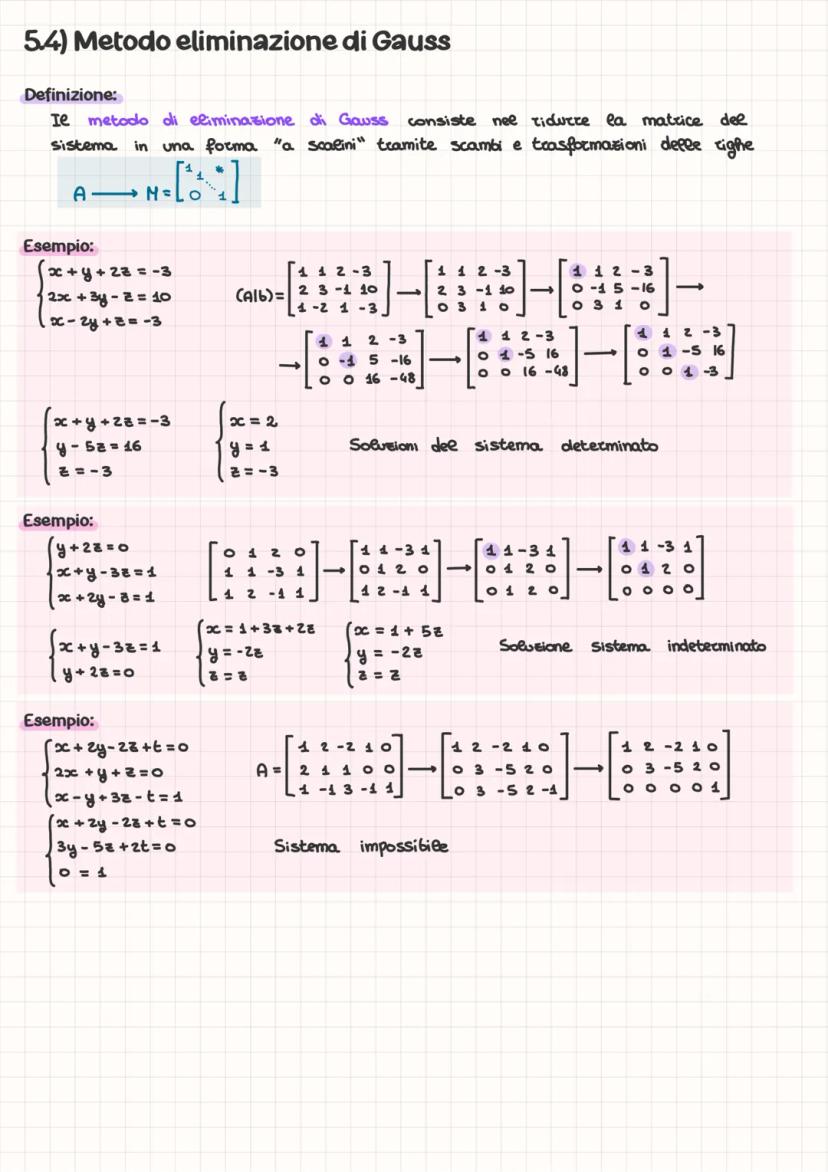 5.4) Metodo eliminazione di Gauss
Definizione:
Il metodo di eliminazione di Gauss consiste nel ridurre la matrice del
sistema in una forma "a scalini" tramite scambi e trasformazioni delle righe
A ⟶ M = [1 1 * ⋱ 0 1]
Esempio:
{ x + y + 2z = -3
2x + 3y - z = 10
x - 2y + z = -3
(A|b) = [1 1 2 -3; 2 3 -1 10; 1 -2 1 -3] ⟶ [1 1 2 -3; 2 3 -1 10; 0 3 1 0] ⟶ [1 1 2 -3; 0 -1 5 -16; 0 3 1 0] ⟶
⟶ [1 1 2 -3; 0 -1 5 -16; 0 0 16 -48] ⟶ [1 1 2 -3; 0 1 -5 16; 0 0 16 -48] ⟶ [1 1 2 -3; 0 1 -5 16; 0 0 1 -3]
{ x + y + 2z = -3
y - 5z = 16
z = -3
{ x = 2
y = 1
z = -3
Soluzioni del sistema determinato
Esempio:
{ y + 2z = 0
x + y - 3z = 1
x + 2y - z = 1
[0 1 2 0; 1 1 -3 1; 1 2 -1 1] ⟶ [1 1 -3 1; 0 1 2 0; 1 2 -1 1] ⟶ [1 1 -3 1; 0 1 2 0; 0 1 2 0] ⟶ [1 1 -3 1; 0 1 2 0; 0 0 0 0]
{ x + y - 3z = 1
y + 2z = 0
{ x = 1 + 3z + 2z
y = -2z
z = z
{ x = 1 + 5z
y = -2z
z = z
Soluzione sistema indeterminato
Esempio:
{ x + 2y - 2z + t = 0
2x + y + z = 0
x - y + 3z - t = 1
A = [1 2 -2 1 0; 2 1 1 0 0; 1 -1 3 -1 1] ⟶ [1 2 -2 1 0; 0 3 -5 2 0; 0 3 -5 2 -1] ⟶ [1 2 -2 1 0; 0 3 -5 2 0; 0 0 0 0 1]
{ x + 2y - 2z + t = 0
3y - 5z + 2t = 0
0 = 1
Sistema impossibile